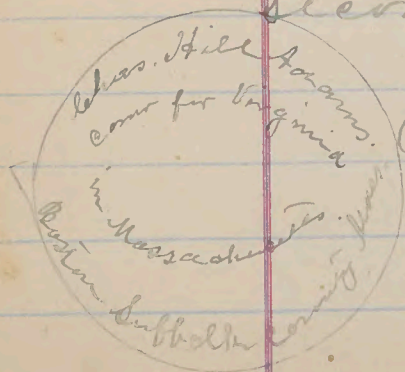 Chas. Hill Adams.
Comr for Virginia
in Massachusetts.
Boston Suffolk County Mass.